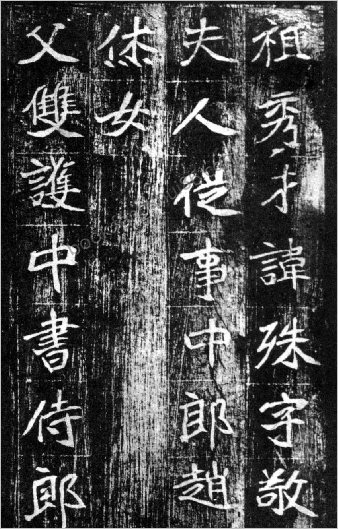 祖秀才諱殊字敬
夫人從事中郎趙
休女
父雙護中書侍郎